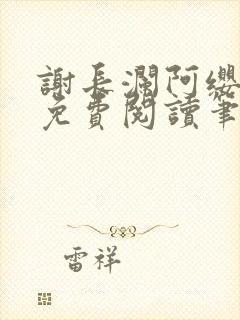 謝長瀾阿纓
免費閱讀筆
雷祥